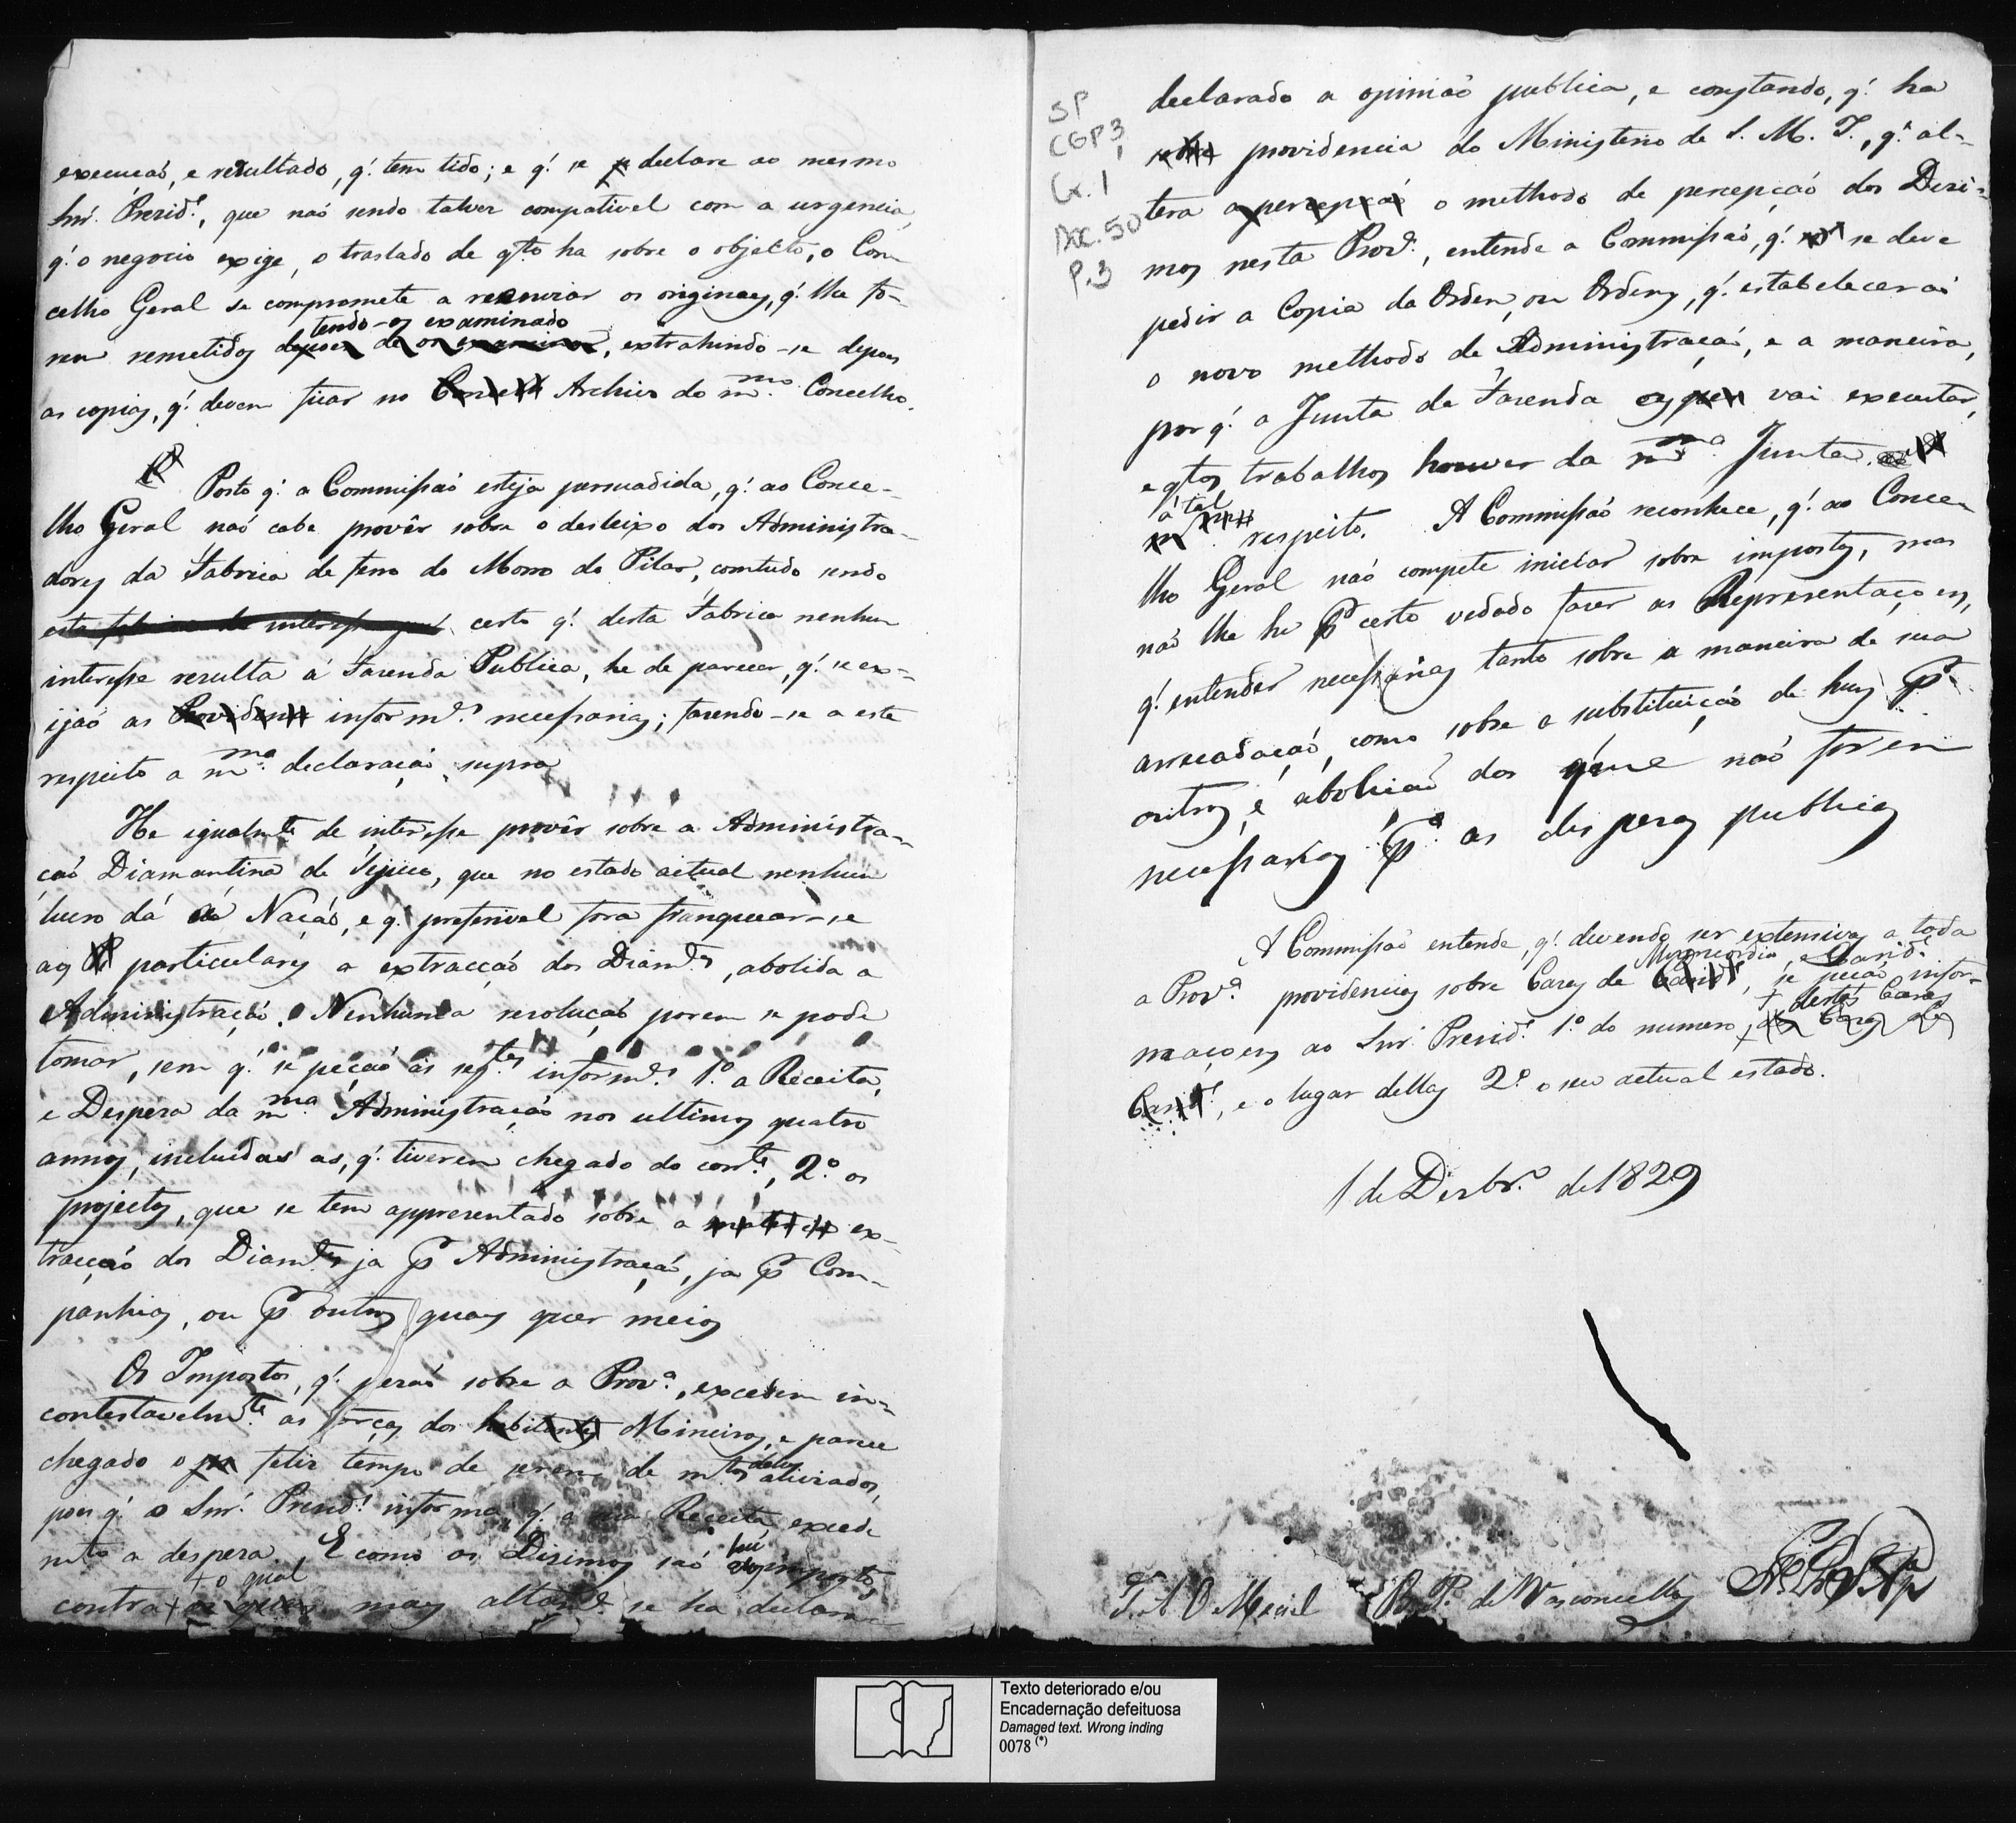 execuçaõ, e resultado, q.' tem tido; e q.' se declare ao mesmo
Snr. Presid.e, que naõ sendo talvez compativel com a urgencia,
q.' o negocio exige, o traslado de q.to ha sobre o objecto, o Con-
celho Geral se compromete a reenviar os originaes, q.' lhe fo-
tendo-os examinado
rem remetidos depois de os examinar, extrahindo-se depois
as copias, q.' devem ficar no Archivo do m.mo Concelho.
Posto q.' a Commissaõ esteja persuadida, q.' ao Conce-
lho Geral naõ cabe provêr sobre o desleixo dos Administra-
dores da Fabrica de ferro do Morro do Pilar, comtudo sendo
certo q.' desta Fabrica nenhum
interesse resulta á Fazenda Publica, he de parecer, q.' se ex-
ijaõ as inform.es necessarias; fazendo-se a este
respeito a m.ma declaraçaõ supra
He igualm.te de interesse provêr sobre a Administra-
çaõ Diamantina de Tejuco, que no estado actual nenhum
lucro dá á Naçaõ, e q.' preferivel fora franquear-se
aos particulares a extracçaõ dos Diam.tes, abolida a
Administraçaõ. Nenhuma resoluçaõ porem se pode
tomar, sem q.' se peçaõ as seg.tes inform.es 1.º a Receita,
e Despeza da m.ma Administraçaõ nos ultimos quatro
annos, incluidas as, q.' tiverem chegado do corr.te, 2.º os
projectos, que se tem appresentado sobre a ex-
tracçaõ dos Diam.tes ja p Administraçaõ, ja p Com-
panhias, ou p outros quaes quer meios
Os Impostos, q.' pezaõ sobre a Prov.a, excedem in-
contestavelm.te as forças dos habitantes Mineiros, e parece
chegado o feliz tempo de serem de m.tos delles aliviados,
pois q.' o Snr. Presid.e informa, q.' a sua Receita excede
m.to a despeza. E como os Dizimos saõ hú dos impostos
+ o qual
contra + os quaes mais altam.e se ha declara-
SP
CGP3,
Cx. 1
Doc. 50
P.3
declarado a opiniaõ publica, e constando, q.' ha
providencia do Ministerio de S. M. I., q.' al-
tera a percepçaõ o methodo de percepçaõ dos Dizi-
mos nesta Prov.a, entende a Commissaõ, q.' se deve
pedir a Copia da Ordem, ou Ordens, q.' estabeleceraõ
o novo methodo de Administraçaõ, e a maneira,
por q.' a Junta da Fazenda vai executar,
e q.tos trabalhos houver da m.ma Junta
a tal
respeito. A Commissaõ reconhece, q.' ao Conce-
lho Geral naõ compete iniciar sobre impostos, mas
naõ lhe he p certo vedado fazer as Representaçoens,
q.' entender necessarias tanto sobre a maneira de sua
arrecadaçaõ, como sobre a substituiçaõ de huns p.r
outros, e aboliçaõ dos que naõ forem
necessarios p.a as despezas publicas
A Commissaõ entende, q.' devendo ser extensivas a toda
Misericordia, e Carid.e
a Prov.a providencias sobre Cazas de Carid.e, se peçaõ infor-
+ destas Cazas
maçoens ao Snr. Presid.e 1.º do numero, + das Cazas de
Carid.e, e o lugar dellas 2.º o seu actual estado.
1 de Dezbr.o de 1829
T. A. O. Maciel B. P. de Vasconcellos
Texto deteriorado e/ou
Encadernação defeituosa
Damaged text. Wrong inding
0078 (*)